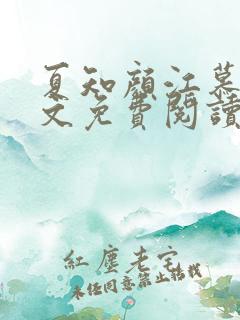 夏知顏江慕
文免費閱讀
紅塵老宅
未經同意禁止轉載